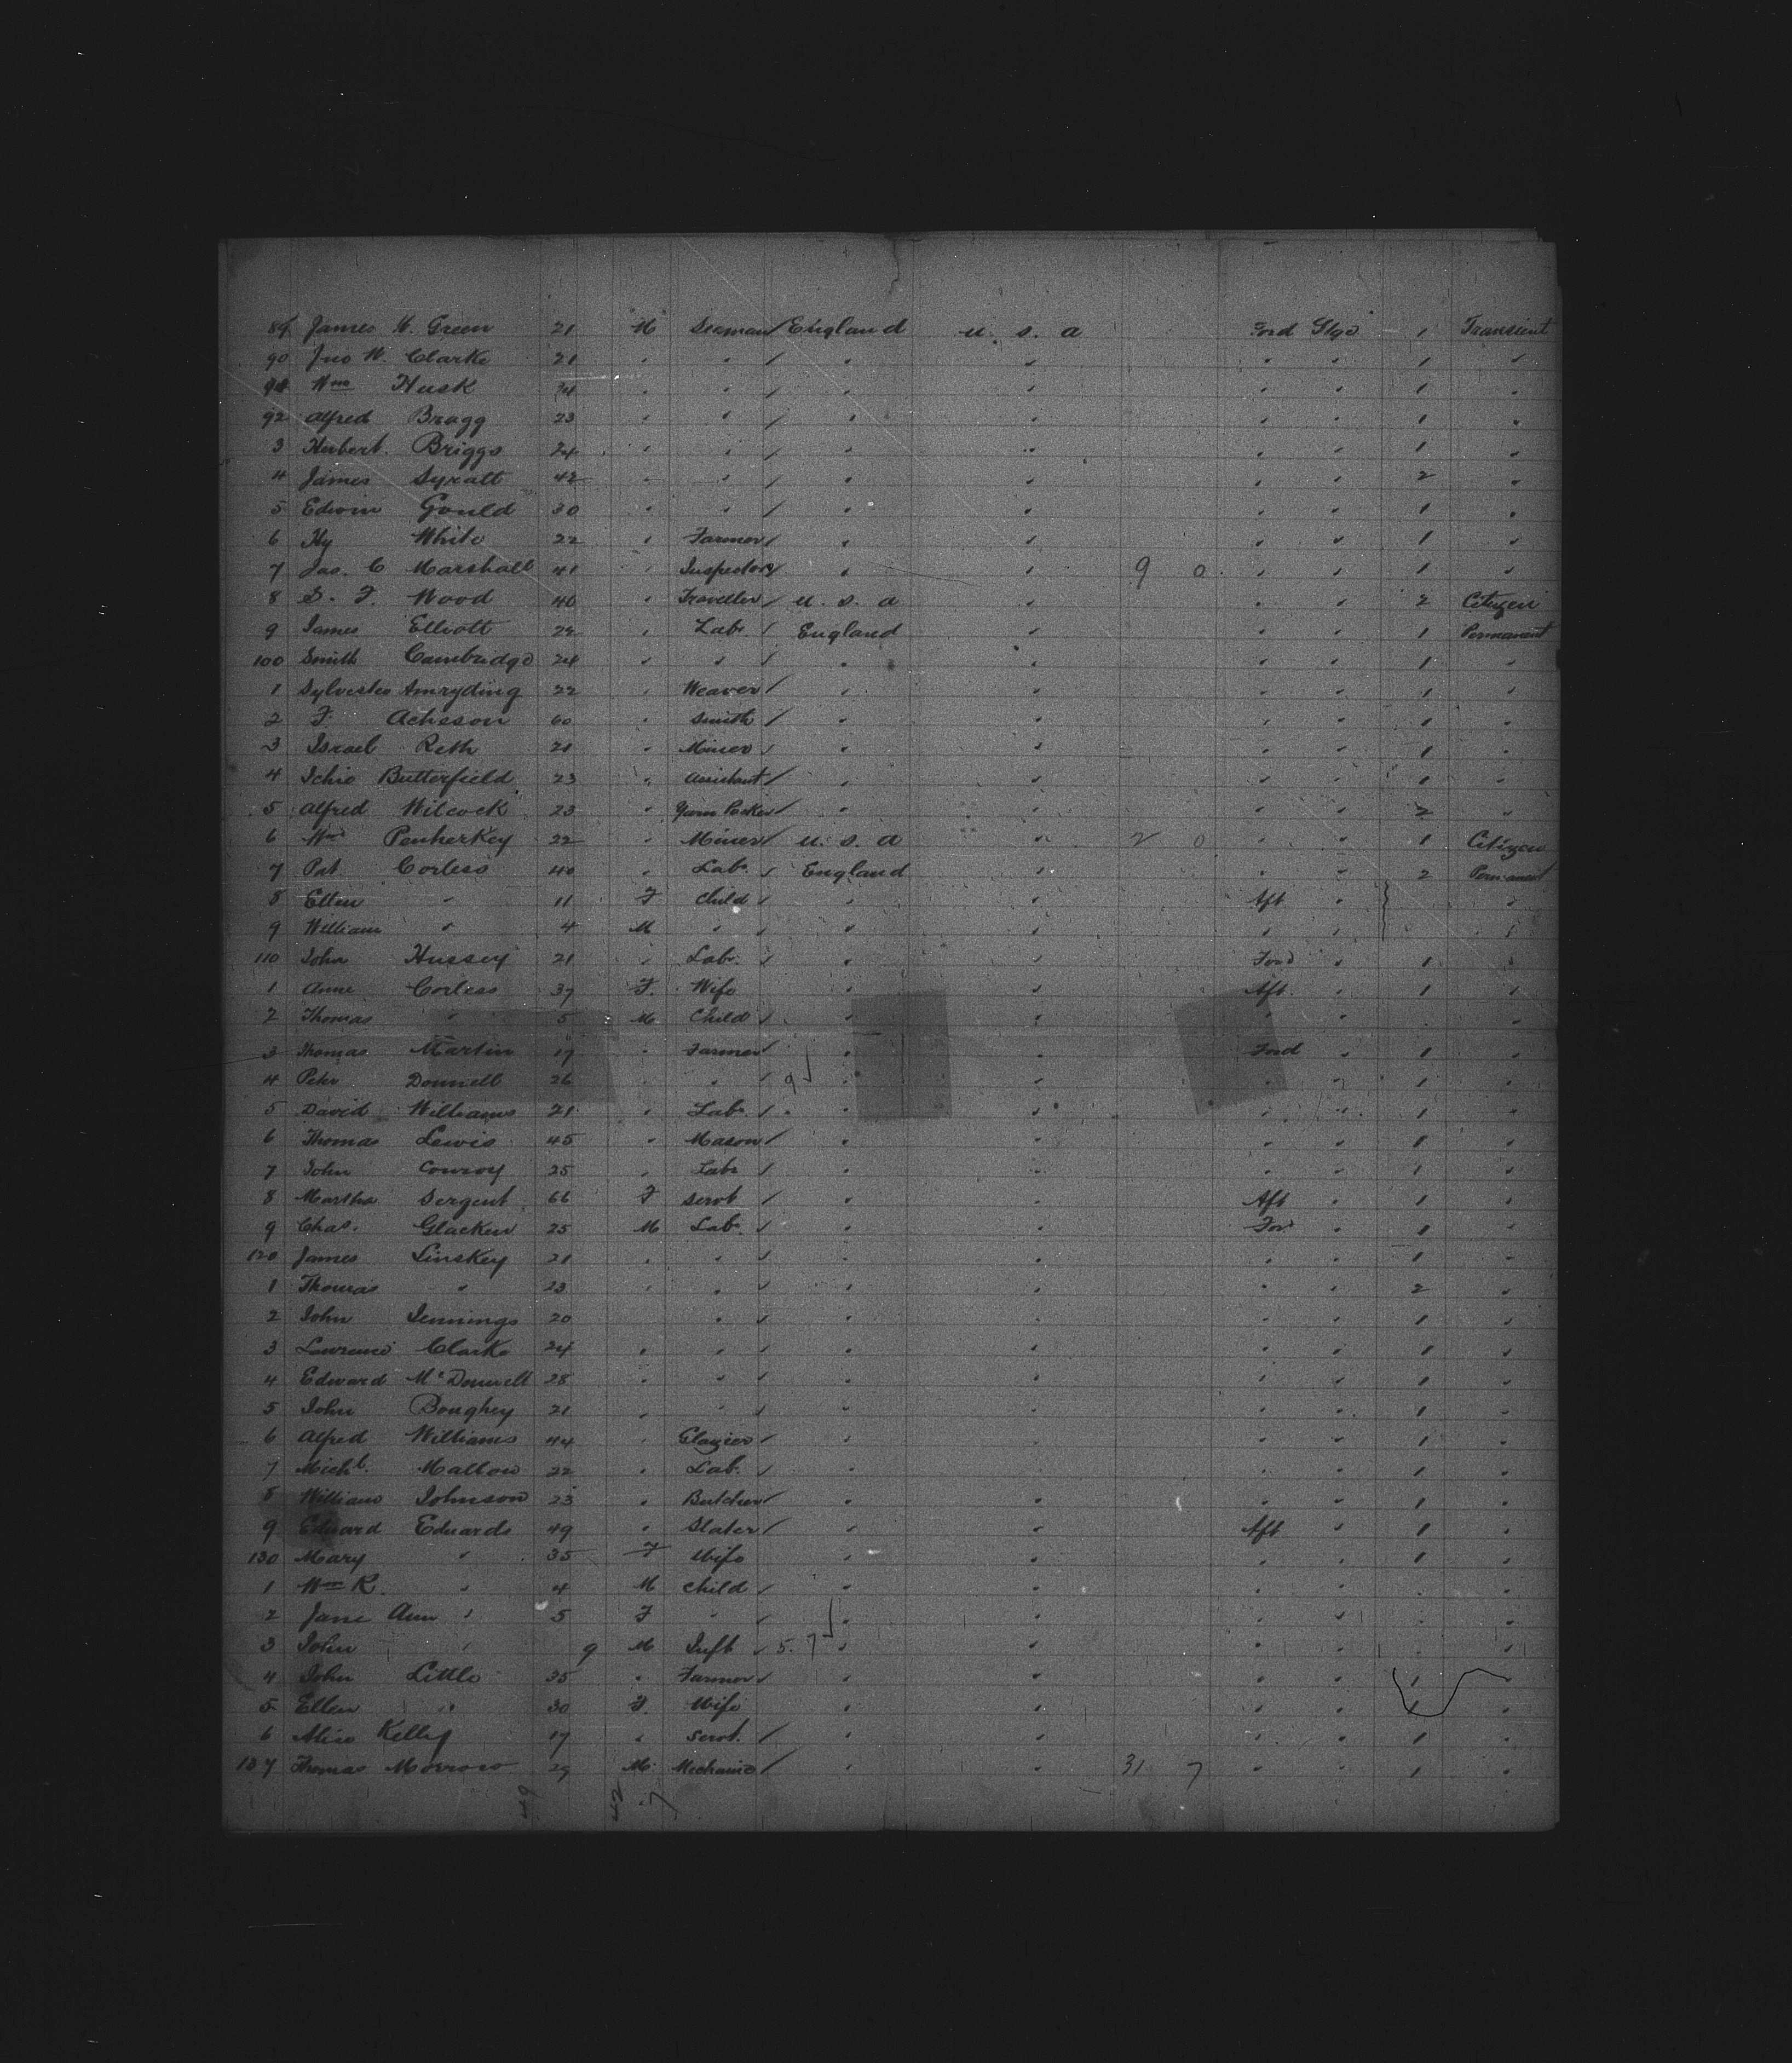 89 James H. Green 21 M Seaman / England U. S. A Ford Stge 1 Transient
90 Jno W. Clarke 21 " " / " " " " 1 "
91 Wm Husk " " / " " " " 1 "
92 Alfred Bragg 23 " " / " " " " 1 "
3 Herbert Briggs 24 " " / " " " " 1 "
4 James Syratt 42 " " / " " " " 2 "
5 Edwin Gould 30 " " / " " " " 1 "
6 Hy White 22 " Farmer / " " " " 1 "
7 Jas. C Marshall 41 " Inspector / " " 9 0 " " 1 "
8 S. F. Wood 40 " Traveller / U. S. A " " " 2 Citizen
9 James Elliott 22 " Labr / England " " " 1 Permanent
100 Smith Cambridge 24 " " / " " " " 1 "
1 Sylvester Amryding 22 " Weaver / " " " " 1 "
2 F. Acheson 60 " Smith / " " " " 1 "
3 Israel Reth 21 " Miner / " " " " 1 "
4 Ichio Butterfield 23 " Assistant / " " " " 1 "
5 Alfred Wilcock 23 " Yarn Packer / " " " " 2 "
6 Wm Penherkey 22 " Miner / U. S. A " 2 0 " " 1 Citizen
7 Pat Corless 40 " Labr / England " " " 2 Permanent
8 Ellen " 11 F Child / " " Aft " "
9 William " 4 M " / " " " " "
110 John Hussey 21 " Labr / " " Ford " 1 "
1 Anne Corless 37 F. Wife " " Aft " 1 "
2 Thomas " 5 M Child / " " " " "
3 Thomas Martin 19 " Farmer / " " Ford " 1 "
4 Peter Donnell 26 " " / 9 " " " " 1 "
5 David Williams 21 " Labr / " " " " 1 "
6 Thomas Lewis 45 " Mason / " " " " 1 "
7 John Conroy 25 " Labr / " " " " 1 "
8 Martha Sergent 66 F Servt / " " Aft " 1 "
9 Chas. Glacken 25 M Labr / " " For " 1 "
120 James Linskey 21 " " / " " " " 1 "
1 Thomas " 23 " " / " " " " 2 "
2 John Jennings 20 " / " " " " 1 "
3 Lawrence Clarke 24 " " / " " " " 1 "
4 Edward McDonnell 28 " " / " " " " 1 "
5 John Boughey 21 " " / " " " " 1 "
6 Alfred Williams 44 " Glazier / " " " " 1 "
7 Michl. Mallow 22 " Lab. / " " " " 1 "
8 William Johnson 23 " Butcher / " " " " 1 "
9 Edward Edwards 49 " Slater / " " Aft " 1 "
130 Mary " 35 F Wife " " " " 1 "
1 Wm R. " 4 M Child / " " " " "
2 Jane Ann " 5 F " / " " " " "
3 John " 9 M Inft / 5. 7 " " " " "
4 John Little 35 " Farmer / " " " " 1 "
5 Ellen " 30 F. Wife " " " " 1 "
6 Alice Kelly 17 " Servt. / " " " " 1 "
137 Thomas Morroso 29 M. Mechanic / " " 31 7 " " 1 "
49 42 7